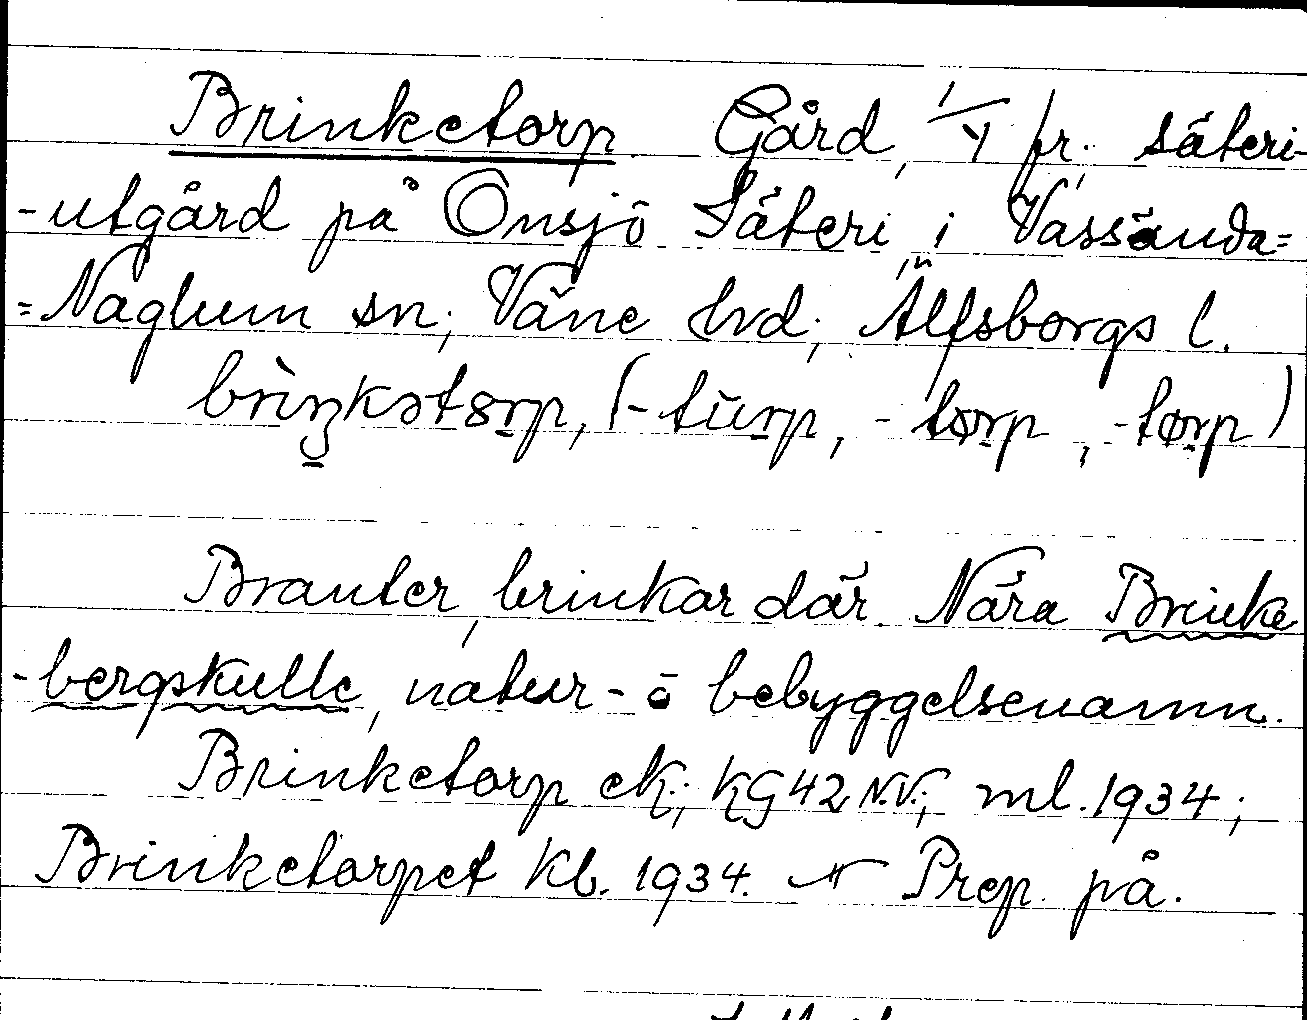 Brinketorp. Gård, 1/4 fr. säteri-
-utgård på Onsjö Säteri i Vassända=
=Naglum sn; Väne hrd; Älfsborgs l.
(-tŭrp, -torp, -tørp)
Branter, brinkar där. Nära Brinke
-bergskulle, natur- o bebyggelsenamn.
Brinketorp ek; KG42 N.V.; ml. 1934;
Brinketorpet Kb. 1934. Prep. på.